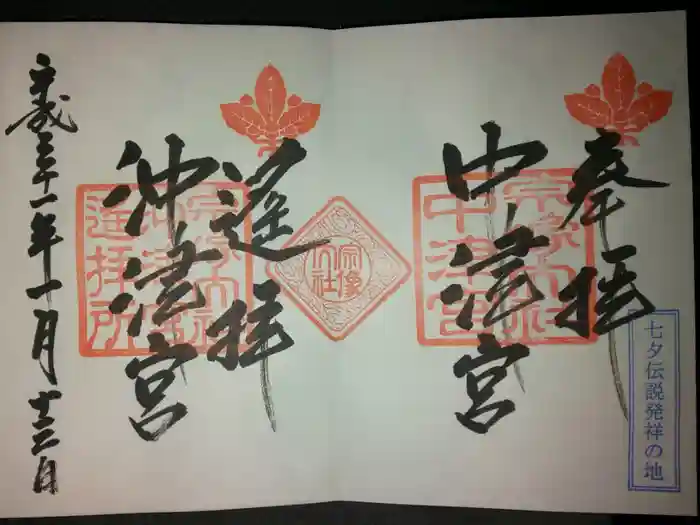 奉拝
中津宮
宗像大社
中津宮
七夕伝説発祥の地
遥拝
沖津宮
宗像大社
沖津宮
遥拝所
宗像
大社
平成三十一年一月十三日